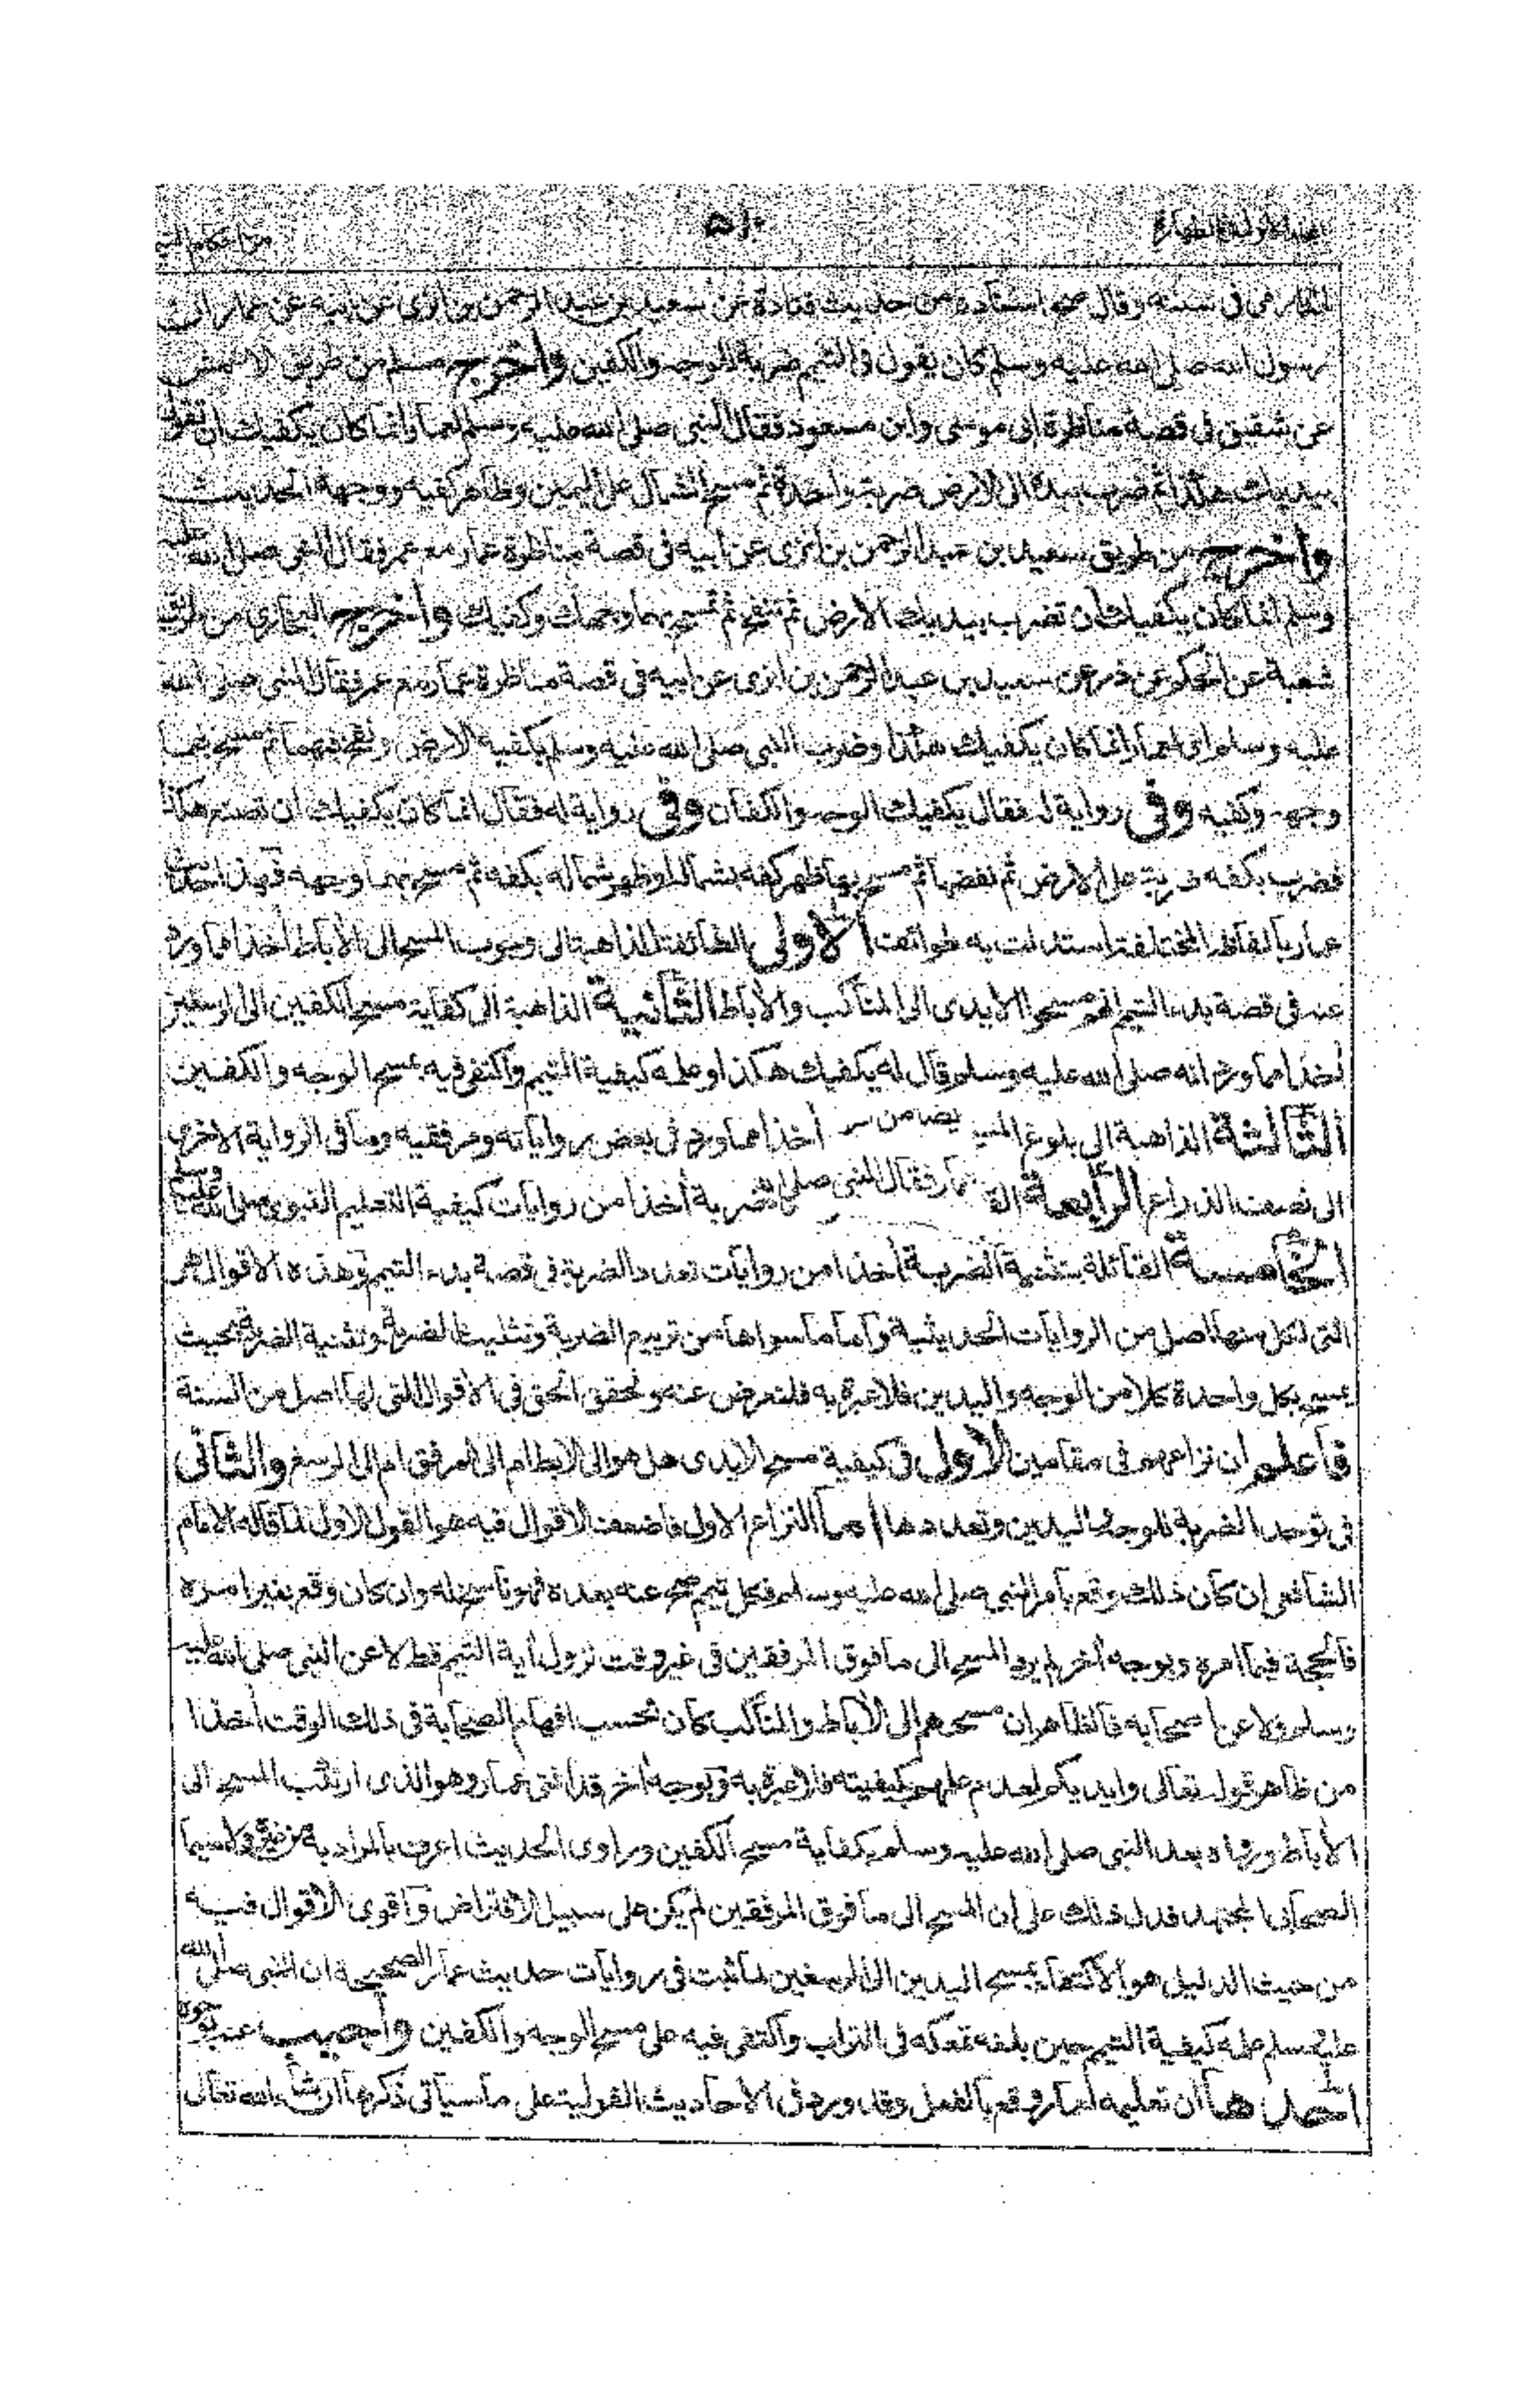 في سننه وقال صح اسناده من حديث قتادة عن سعيد بن عبد الرحمن بن ابزى عن ابيه عن عمار ان
رسول الله صلى الله عليه وسلم كان يقول في التيمم ضربة للوجه والكفين وأخرج مسلم من طريق الاعمش
عن شقيق في قصة مناظرة ابى موسى وابن مسعود فقال النبي صلى الله عليه وسلم انما كان يكفيك ان تقول
بيديك هكذا ثم ضرب بيديه الى الارض ضربة واحدة ثم مسح الشمال على اليمين وظاهر كفيه ووجهه الحديث
وأخرج من طريق سعيد بن عبد الرحمن بن ابزى عن ابيه في قصة مناظرة عمار مع عمر فقال النبي صلى الله عليه
وسلم انما كان يكفيك أن تضرب بيديك الارض ثم تنفخ ثم تمسح بهما وجهك وكفيك وأخرج البخاري من طريق
شعبة عن الحكم عن ذر عن سعيد بن عبد الرحمن بن ابزى عن ابيه في قصة مناظرة عمار مع عمر فقال النبي صلى الله
عليه وسلم انما كان يكفيك هكذا وضرب النبي صلى الله عليه وسلم بكفيه الارض ونفخ فيهما ثم مسح بهما
وجهه وكفيه وفي رواية له فقال يكفيك الوجه والكفان وفي رواية له فقال انما كان يكفيك ان تصنع هكذا
فضرب بكفه ضربة على الارض ثم نفضها ثم مسح بها ظهر كفه بشماله او ظهر شماله بكفه ثم مسح بهما وجهه فهذا حديث
عمار بالفاظه المختلفة استدلت به طوائف الأولى الطائفة الذاهبة الى وجوب المسح الى الآباط أخذا مما ورد
عنه في قصة بدء التيمم انهم مسحوا الايدى الى المناكب والآباط الثانية الذاهبة الى كفاية مسح الكفين الى الرسغين
أخذا مما ورد انه صلى الله عليه وسلم قال له يكفيك هكذا وعلمه كيفية التيمم واكتفى فيه بمسح الوجه والكفين
الثالثة الذاهبة الى بلوغ المسح أخذا مما ورد في بعض رواياته ومرفقيه وما في الرواية الاخرى
الى نصف الذراع الرابعة ضربة أخذا من روايات كيفية التعليم النبوى صلى الله عليه وسلم
الخامسة القائلة بتثنية الضربة أخذا من روايات تعدد الضربة في قصة بدء التيمم فهذه الاقوال هى
التى لكل منها اصل من الروايات الحديثية وأما ما سواها من تربيع الضربة وتثليث الضربة وتثنية الضربة بحيث
يمسح بكل واحدة كلا من الوجه واليدين فلا عبرة به فلنعرض عنه ونحقق الحق في الاقوال التى لها اصل من السنة
فاعلم ان نزاعهم في مقامين الأول في كيفية مسح الايدى هل هو الى الابط ام الى المرفق ام الى الرسغ والثانى
في توحد الضربة للوجه واليدين وتعددها أما النزاع الاول فاضعف الاقوال فيه هو القول الاول لما قاله الامام
الشافعى ان كان ذلك وقع بامر النبي صلى الله عليه وسلم فكل تيمم صح عنه بعده فهو ناسخ له وان كان وقع بغير امره
فالحجة فيما امر به وبوجه أخر لم يرو المسح الى ما فوق المرفقين في غير وقت نزول أية التيمم قط لا عن النبي صلى الله عليه
وسلم ولا عن أصحابه فالظاهر ان مسحهم الى الآباط والمناكب كان بحسب افهام الصحابة في ذلك الوقت أخذا
من ظاهر قوله تعالى وايديكم لعدم علمهم بكيفيته فلا عبرة به وبوجه أخر قد افتى عمار وهو الذى ارتكب المسح الى
الآباط ورواه بعد النبي صلى الله عليه وسلم بكفاية مسح الكفين وراوى الحديث اعرف بالمراد به من غيره ولا سيما
الصحابى المجتهد فدل ذلك على ان المسح الى ما فوق المرفقين لم يكن على سبيل الافتراض وأقوى الاقوال فيه
من حيث الدليل هو الاكتفاء بمسح اليدين الى الرسغين لما ثبت في روايات حديث عمار الصحيحة ان النبي صلى الله
عليه وسلم علمه كيفية التيمم حين بلغه تمعكه في التراب واكتفى فيه على مسح الوجه والكفين وأجيب عنه بوجوه
أحدها أن تعليمه لعمار وقع بالفعل وقد ورد في الاحاديث القولية على ما سيأتى ذكرها ان شاء الله تعالى